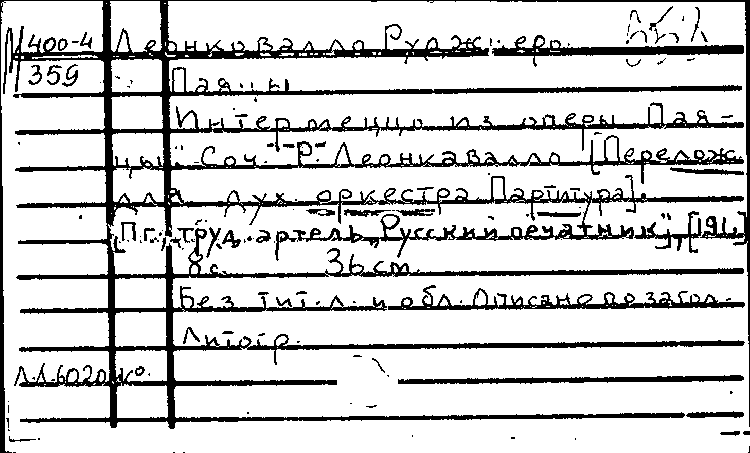 М 400-4 Леонковалло Руджиеро.
359
Паяцы
Интермеццо из оперы Пая-
цы" Соч. Р. Леонкавалло [Перелож.
для дух. оркестра. Партитура].
[Пг. труд. артель „Русский печатник", [191.]
8 с. 36 см.
Без тит. л. и обл. Описано по загол.
Литогр.